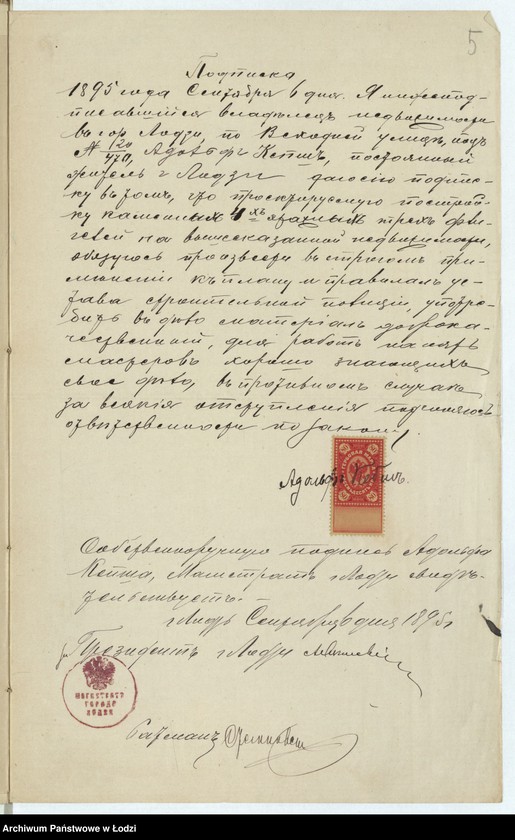 5
Подписка
1895 года Сентября 6 дня. Я нижепод-
писавшійся владѣлецъ недвижимости
въ гор Лодзи, по Всходней улицѣ, подъ
№ 120/470, Адольфъ Кепшъ, постоянный
житель г Лодзи даю сію подпис-
ку въ томъ, что проектируемую построй-
ку каменныхъ 4хъ этажныхъ трехъ фли-
гелей на вышесказанной недвижимости,
обязуюсь произвести въ строгомъ при-
мѣненіи къ плану и правиламъ ус-
тава строительной полиціи, употре-
бить въ дѣло матеріалъ доброка-
чественный, для работъ нанять
мастеровъ хорошо знающихъ
свое дѣло, въ противномъ случаѣ
за всякія отступленія подчиняюсь
отвѣтственности по закону.
Адольфъ Кепшъ.
Собственноручную подпись Адольфа
Кепша, Магистратъ г Лодзи свидѣ-
тельствуетъ. —
г Лодзь Сентября 6 дня 1895 г
за Президентъ г Лодзи
МАГИСТРАТЪ
ГОРОДА
ЛОДЗИ
Ратманъ
Archiwum Państwowe w Łodzi